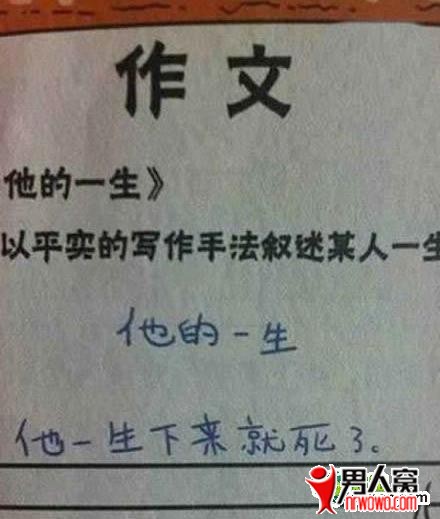 作文
他的一生》
以平实的写作手法叙述某人一生
他的一生
他一生下来就死了。
男人窝
nrwowo.com